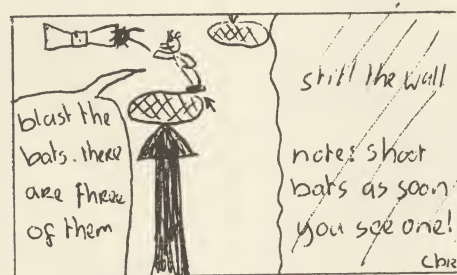 blast the
bats. there
are three
of them
still the wall
note: shoot
bats as soon
you see one!